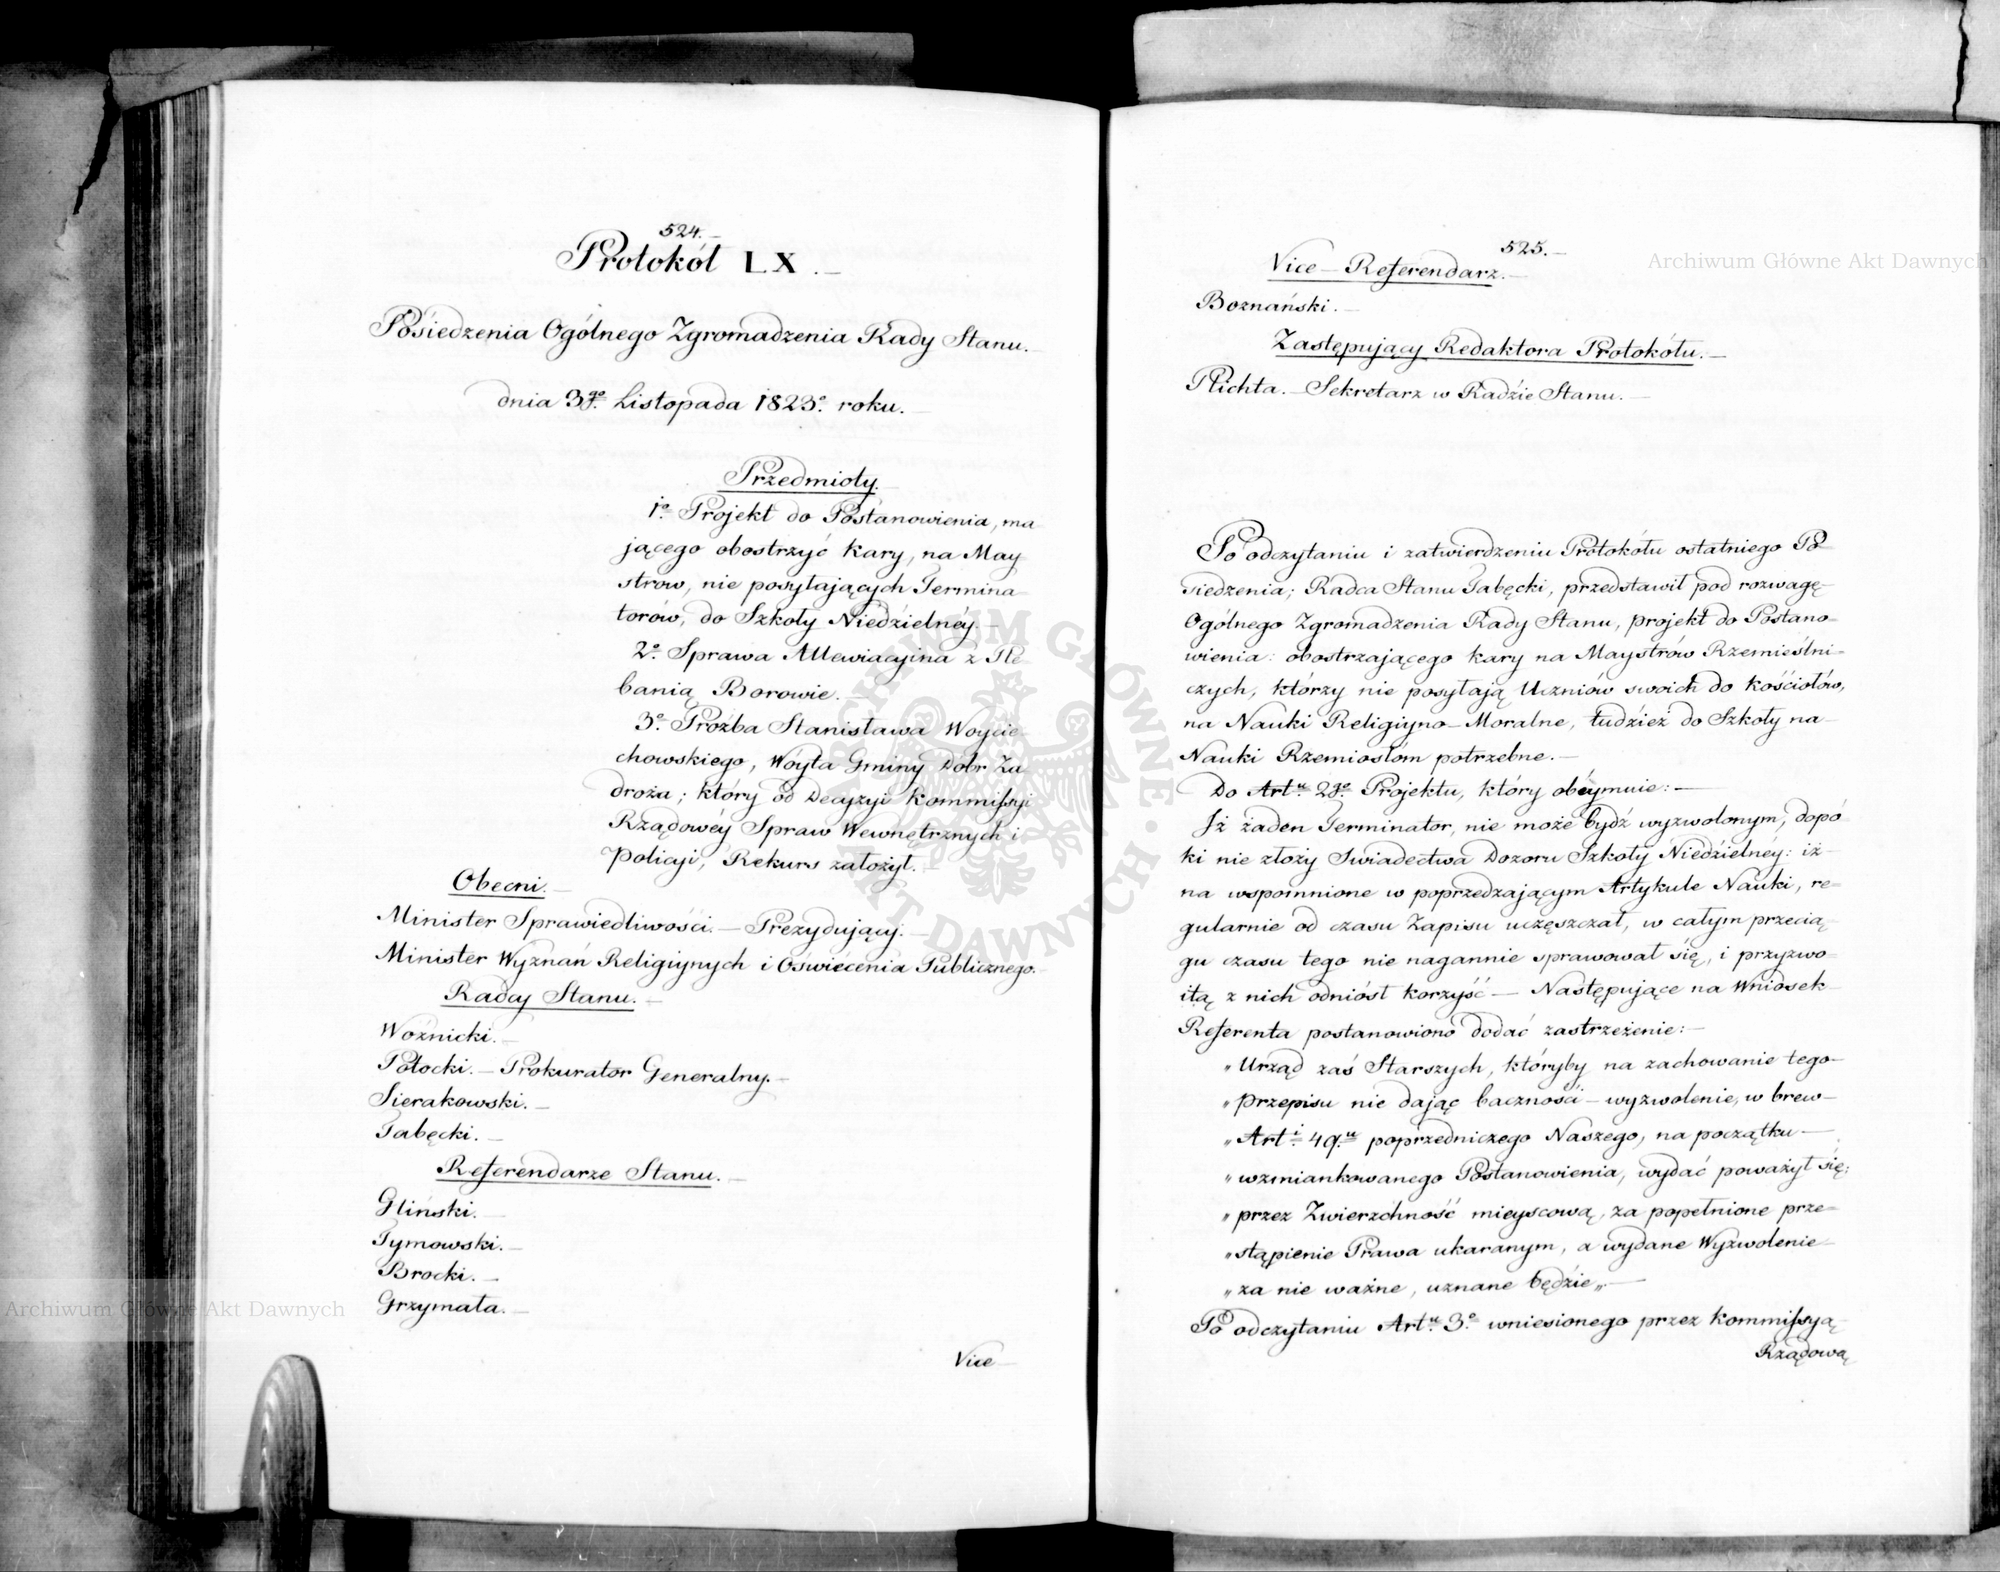 524.
Protokół LX.
Posiedzenia Ogólnego Zgromadzenia Rady Stanu.
dnia 3go. Listopada 1823o. roku.
Przedmioty.
1o. Projekt do Postanowienia, ma
jącego obostrzyć kary, na May
strow, nie posyłających Termina
torów, do Szkoły Niedzielnéy.
2o. Sprawa Allewiacyina z Ple
banią Borowie.
3o. Prożba Stanisława Woycie
chowskiego, Wóyta Gminy Dobr Za
droża; który od Decyzyi Kommissyi
Rządowéy Spraw Wewnętrznych i
Policyi, Rekurs założył.
Obecni.
Minister Sprawiedliwości. Prezydujący.
Minister Wyznań Religiynych i Oświécenia Publicznego.
Radcy Stanu.
Woźnicki.
Potocki. Prokurator Generalny.
Sierakowski.
Tabęcki.
Referendarze Stanu.
Gliński.
Tymowski.
Brocki.
Grzymała.
Vice
525.
Vice-Referendarz.
Boznański.
Zastępujący Redaktora Protokółu.
Plichta. Sekretarz w Radzie Stanu.
Po odczytaniu i zatwierdzeniu Protokółu ostatniego Po-
siedzenia; Radca Stanu Tabęcki, przedstawił pod rozwagę
Ogólnego Zgromadzenia Rady Stanu, projekt do Postano-
wienia: obostrzającego kary na Maystrów Rzemieślni-
czych, którzy nie posyłają Uczniów swoich do kościołów,
na Nauki Religiyno-Moralne, tudzież do Szkoły na
Nauki Rzemiosłom potrzebne.
Do Artu. 2go. Projektu, który obéymuie:
Iż żaden Terminator, nie może bydź wyzwolonym, dopó
ki nie złoży Swiadectwa Dozoru Szkoły Niedzielnéy: iż
na wspomnione w poprzedzającym Artykule Nauki, re-
gularnie od czasu Zapisu uczęszczał, w całym przecią
gu czasu tego nie nagannie sprawował się, i przyzwo-
itą z nich odniósł korzyść — Następujące na Wniosek
Referenta postanowiono dodać zastrzeżenie:
„Urząd zaś Starszych, któryby na zachowanie tego
„przepisu nie dając baczności wyzwolenie, w brew
„Arti. 49u. poprzedniczego Naszego, na początku
„wzmiankowanego Postanowienia, wydać poważył się;
„przez Zwierzchność mieyscową, za popełnione prze-
„stąpienie Prawa ukaranym, a wydane Wyzwolenie
„za nie ważne, uznane będzie„
Po odczytaniu Artu. 3o. wniesionego przez Kommissyą
Rządową
Archiwum Główne Akt Dawnych
Archiwum Główne Akt Dawnych
ARCHIWUM GŁÓWNE AKT DAWNYCH